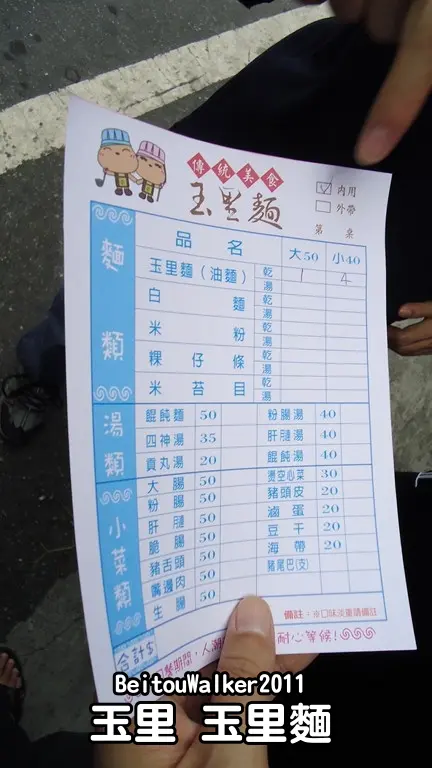 傳統美食
玉里麵
☑ 內用
☐ 外帶
第 桌
麵類
品名 大50 小40
玉里麵(油麵) 乾 1 4
湯
白麵 乾
湯
米粉 乾
湯
粿仔條 乾
湯
米苔目 乾
湯
湯類
餛飩麵 50 粉腸湯 40
四神湯 35 肝腱湯 40
貢丸湯 20 餛飩湯 40
小菜類
大腸 50 燙空心菜 30
粉腸 50 豬頭皮 20
肝腱 50 滷蛋 20
脆腸 50 豆干 20
豬舌頭 50 海帶 20
嘴邊肉 50 豬尾巴(支)
生腸 50
合計$
備註:※口味淡重請備註
期間,人潮
耐心等候!
BeitouWalker2011
玉里 玉里麵